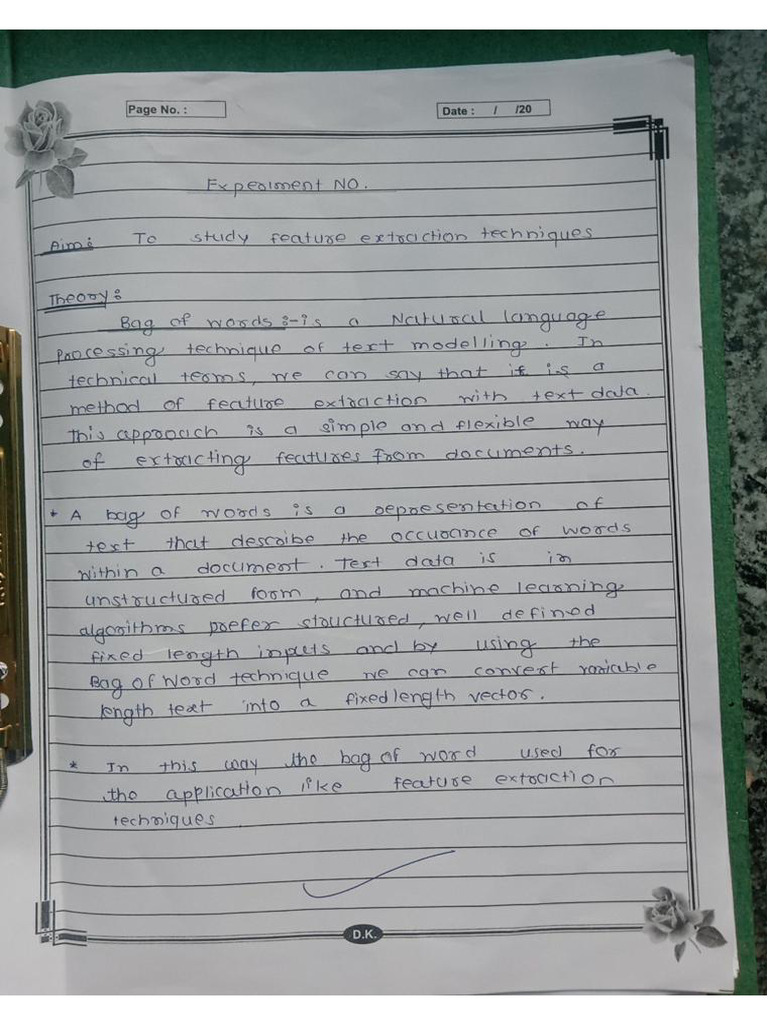 Page No. :
Date : / /20
Experiment NO.
Aim: To study feature extraction techniques
Theory:
Bag of words :- is a Natural language
processing technique of text modelling. In
technical terms, we can say that it is a
method of feature extraction with text data.
This approach is a simple and flexible way
of extracting features from documents.
* A bag of words is a representation of
text that describe the occurance of words
within a document. Text data is in
unstructured form, and machine learning
algorithms prefer structured, well defined
fixed length inputs and by using the
Bag of Word technique we can convert variable
length text into a fixed length vector.
* In this way the bag of word used for
the application like feature extraction
techniques
D.K.